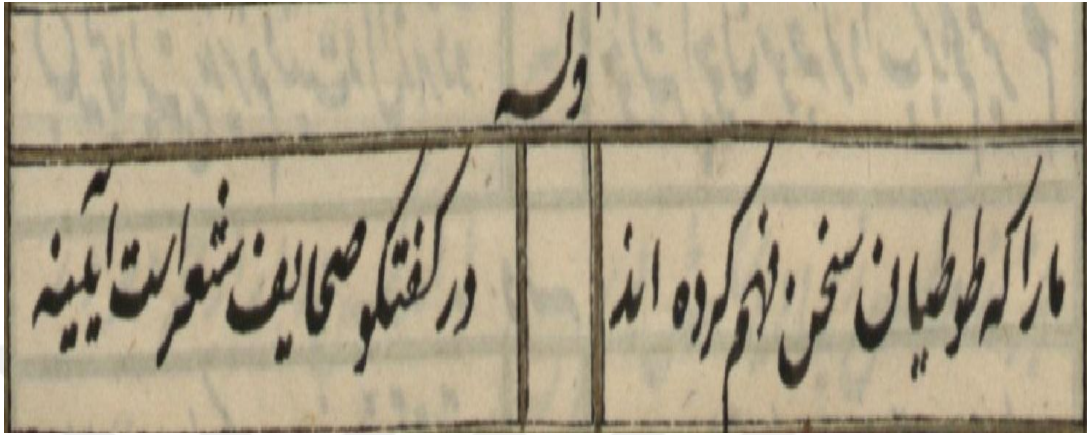 وله
ما را که طوطیان سخن فهم کرده اند
در کفتکو صحایف شعراست آیینه